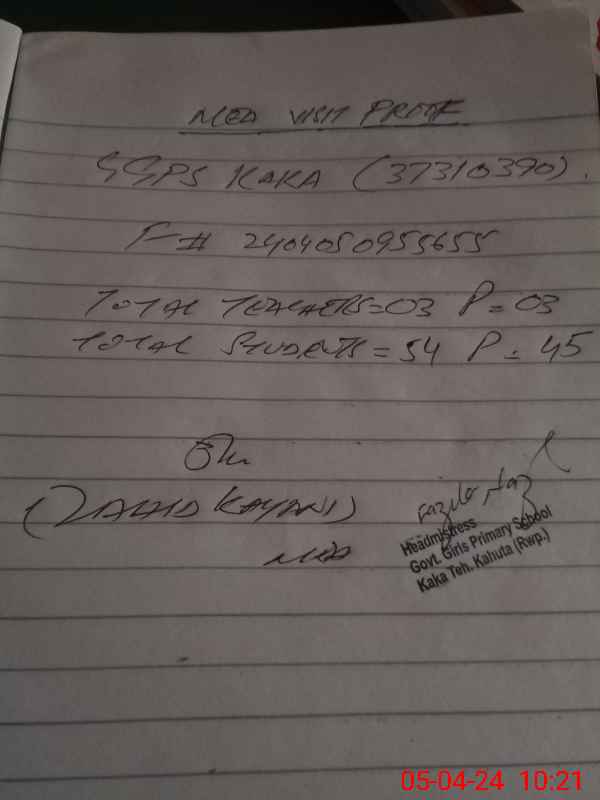 MEA VISIT PROOF
GGPS KAKA (37310390).
F# 2404050955655
TOTAL TEACHERS=03 P=03
TOTAL STUDENTS=54 P=45
(ZAHID KAYANI)
MEA
Fazila Naz
Headmistress
Govt. Girls Primary School
Kaka Teh. Kahuta (Rwp.)
05-04-24 10:21